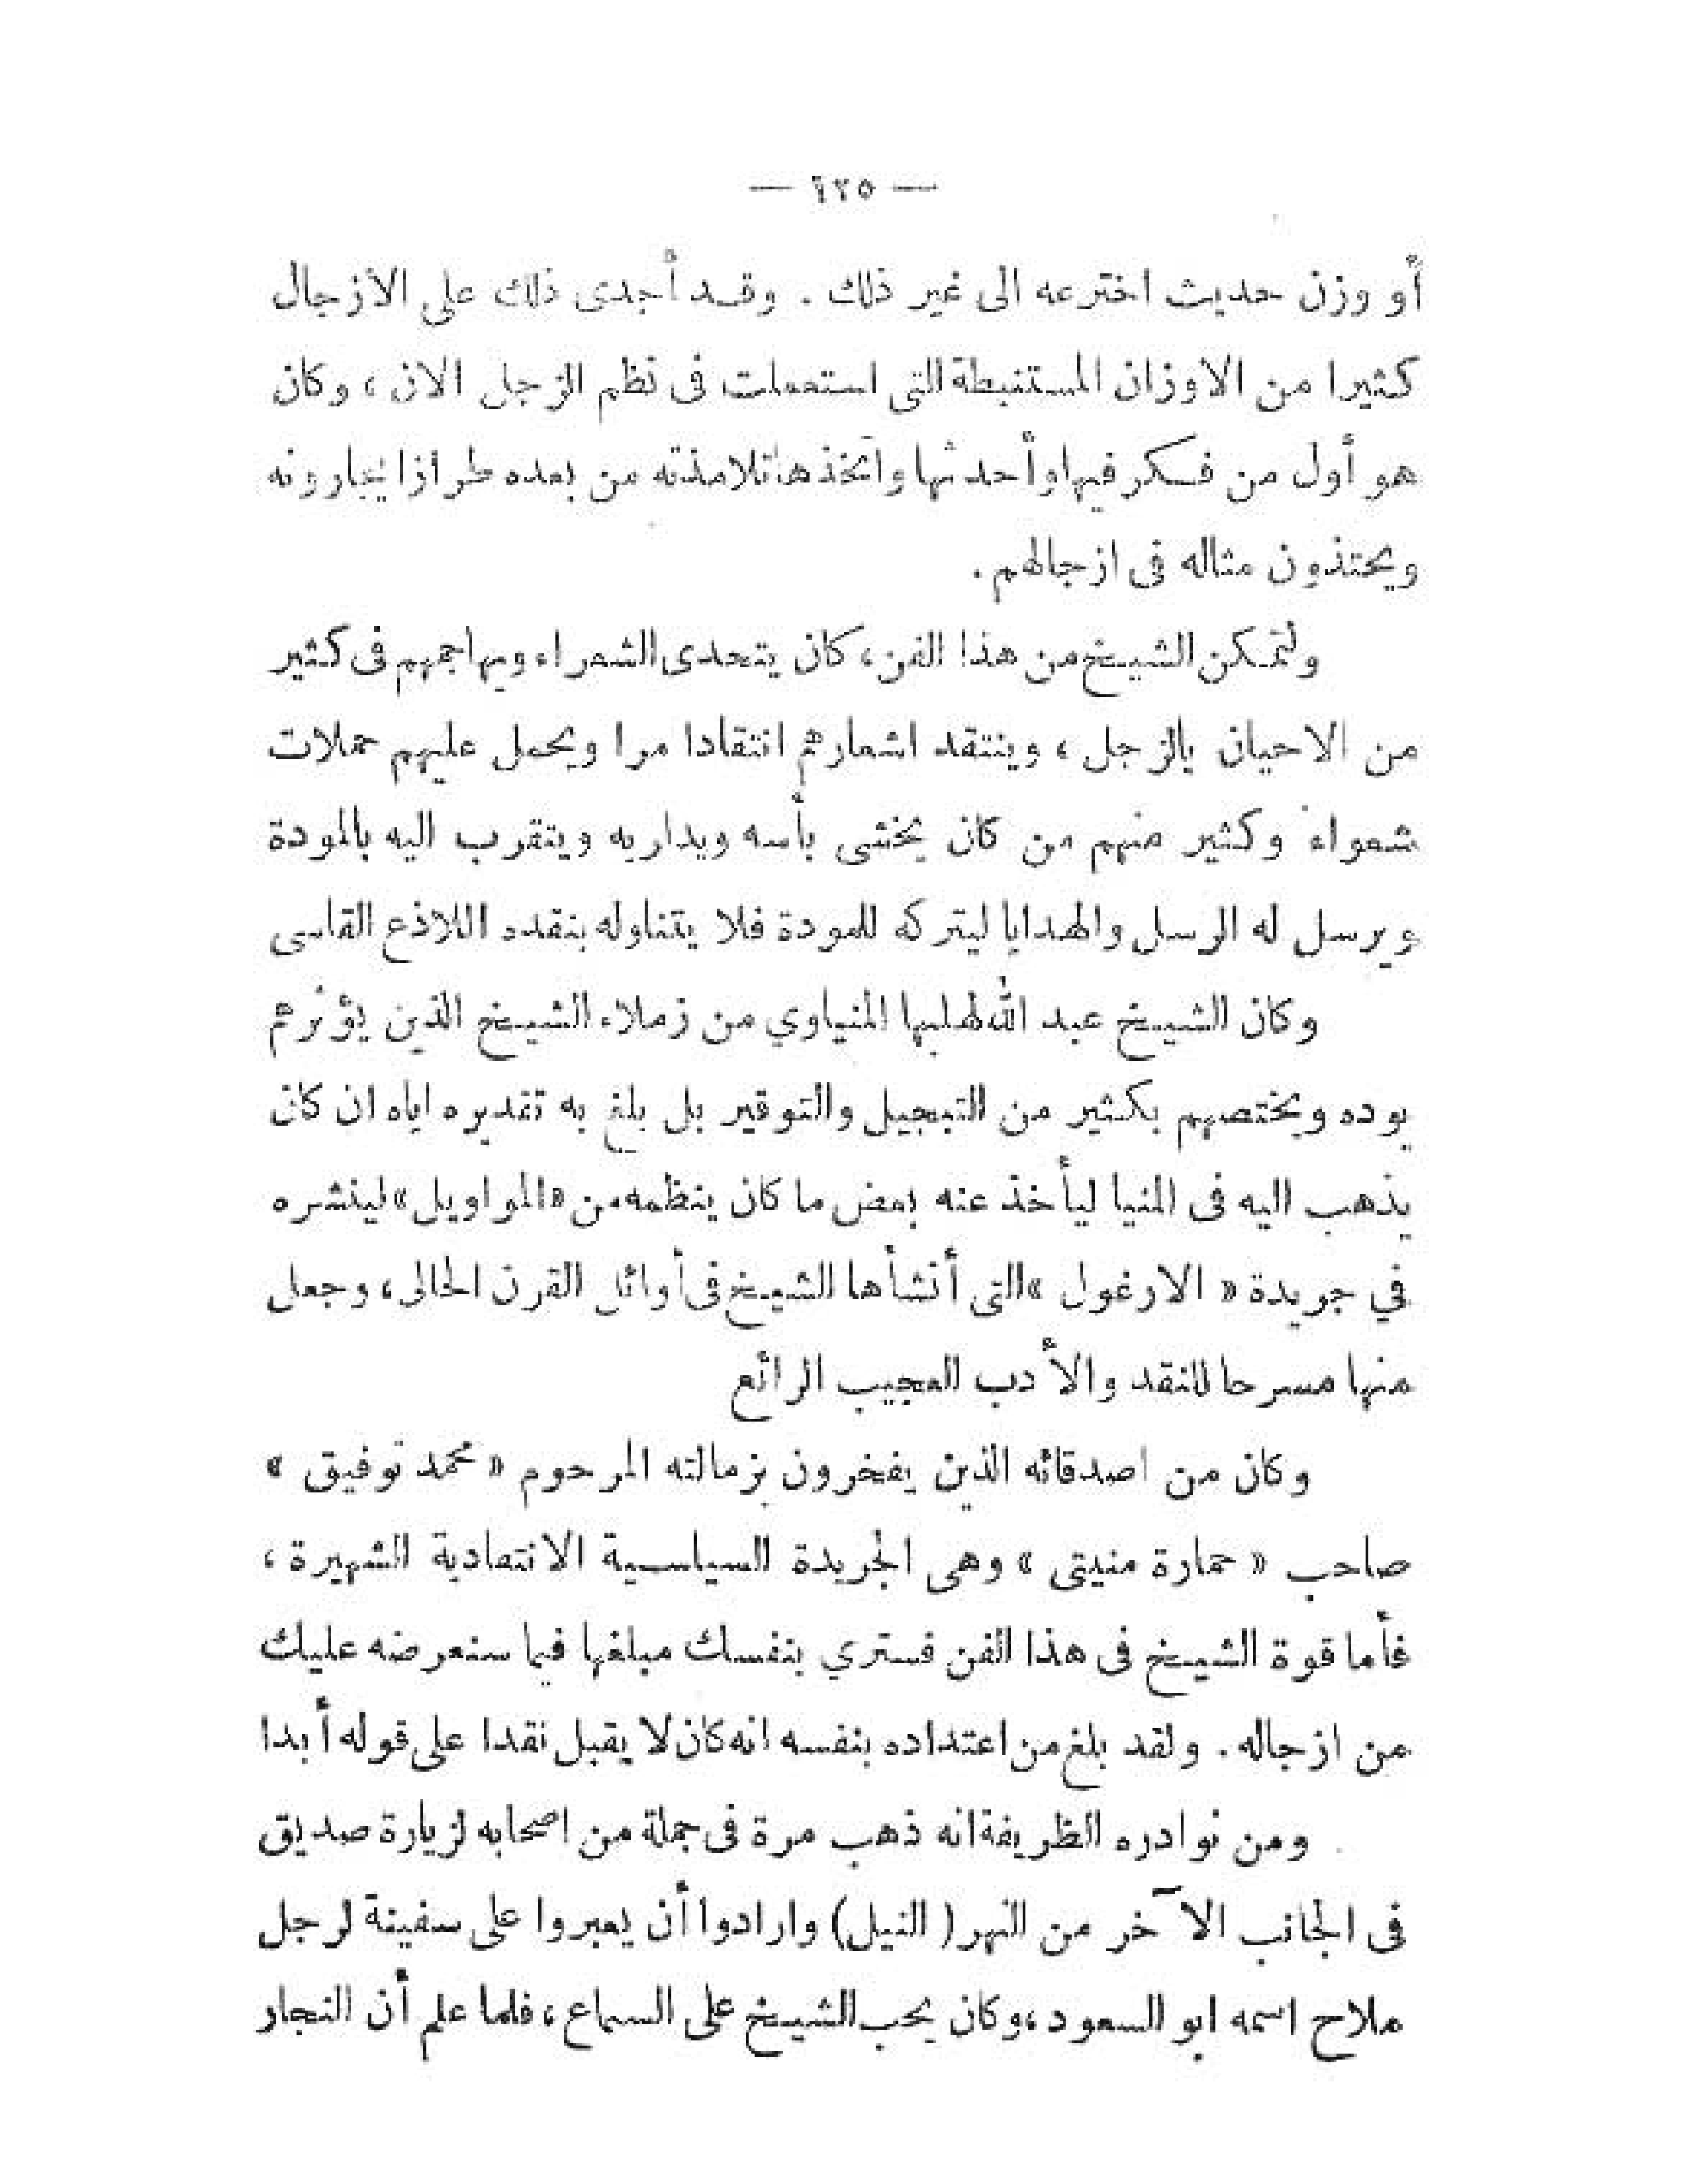 — ١٢٥ —
أو وزن حديث اخترعه الى غير ذلك . وقد أجدى ذلك على الازجال
كثيرا من الاوزان المستنبطة التى استعملت فى نظم الزجل الان ، وكان
هو أول من فكر فيها وأحدثها واتخذها تلامذته من بعده طرازا يجارونه
ويحتذون مثاله فى ازجالهم .
ولتمكن الشيخ من هذا الفن ، كان يتحدى الشعراء ويهاجمهم فى كثير
من الاحيان بالزجل ، وينتقد اشعارهم انتقادا مرا ويحمل عليهم حملات
شعواء وكثير منهم من كان يخشى بأسه ويداريه ويتقرب اليه بالمودة
ويرسل له الرسل والهدايا ليتركه للمودة فلا يتناوله بنقده اللاذع القاسى
وكان الشيخ عبد الله لهلبها المنياوي من زملاء الشيخ الذين يؤثرهم
بوده ويختصهم بكثير من التبجيل والتوقير بل بلغ به تقديره اياه ان كان
يذهب اليه فى المنيا ليأخذ عنه بعض ما كان ينظمه من «المواويل» لينشره
في جريدة « الارغول » التى أنشأها الشيخ فى أوائل القرن الحالى ، وجعل
منها مسرحا للنقد والأدب العجيب الرائع
وكان من اصدقائه الذين يفخرون بزمالته المرحوم « محمد توفيق »
صاحب « حمارة منيتى » وهى الجريدة السياسية الانتقادية الشهيرة ،
فأما قوة الشيخ فى هذا الفن فستري بنفسك مبلغها فيما سنعرضه عليك
من ازجاله . ولقد بلغ من اعتداده بنفسه انه كان لا يقبل نقدا على قوله أبدا
ومن نوادره الظريفة انه ذهب مرة فى جملة من اصحابه لزيارة صديق
فى الجانب الآخر من النهر ( النيل ) وارادوا أن يعبروا على سفينة لرجل
ملاح اسمه ابو السعود ، وكان يحب الشيخ على السماع ، فلما علم أن النجار